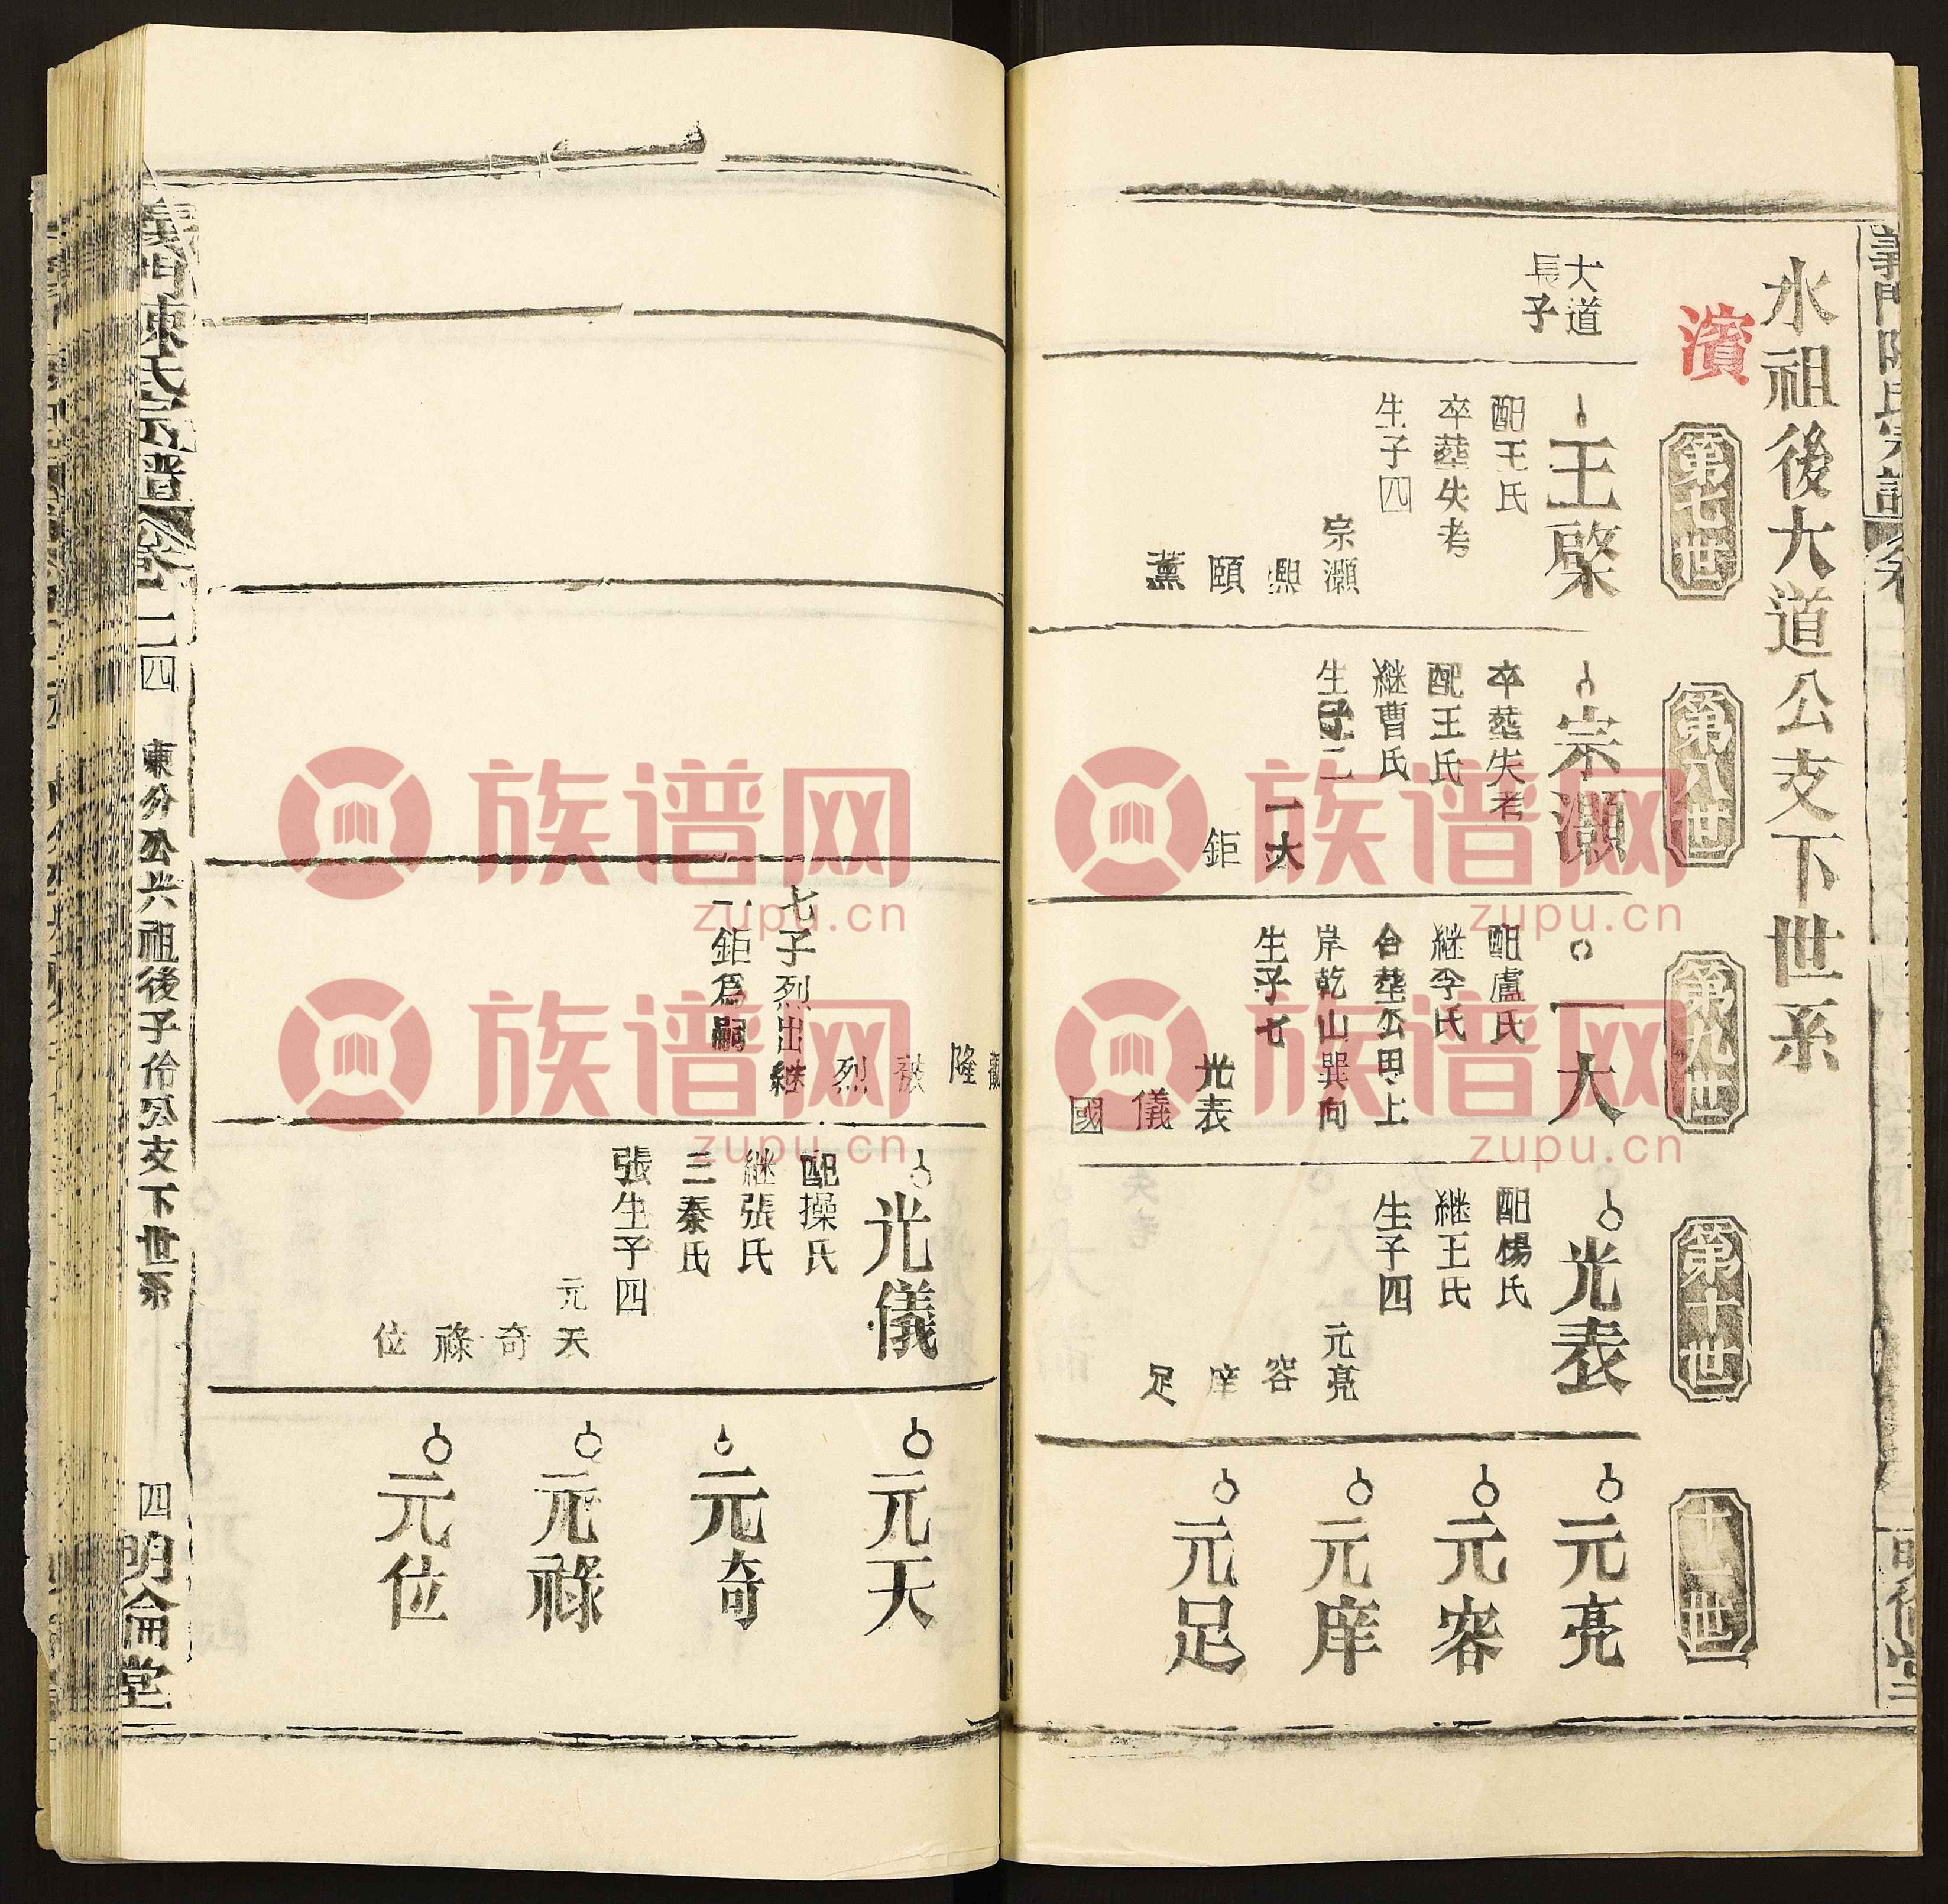 水祖後大道公支下世系
濱
第七世
第八世
第九世
第十世
十一世
大道
長子
王棨
配王氏
卒葬失考
生子四
宗灝
頤
薰
宗灝
卒葬失考
配王氏
継曹氏
生子二
一大
鉅
一大
配盧氏
継李氏
合葬公甲上
岸乾山巽向
生子七
光表
儀
國
光表
配楊氏
継王氏
生子四
元亮
容
庠
足
元亮
元容
元庠
元足
隆
烈
七子烈出継
一鉅為嗣
光儀
配操氏
継張氏
三秦氏
張生子四
元天
奇
祿
位
元天
元奇
元祿
元位
義門陳氏宗譜
卷二四
東分公光祖後子伶公支下世系
四
明倫堂
族谱网
zupu.cn
族谱网
zupu.cn
族谱网
zupu.cn
族谱网
zupu.cn